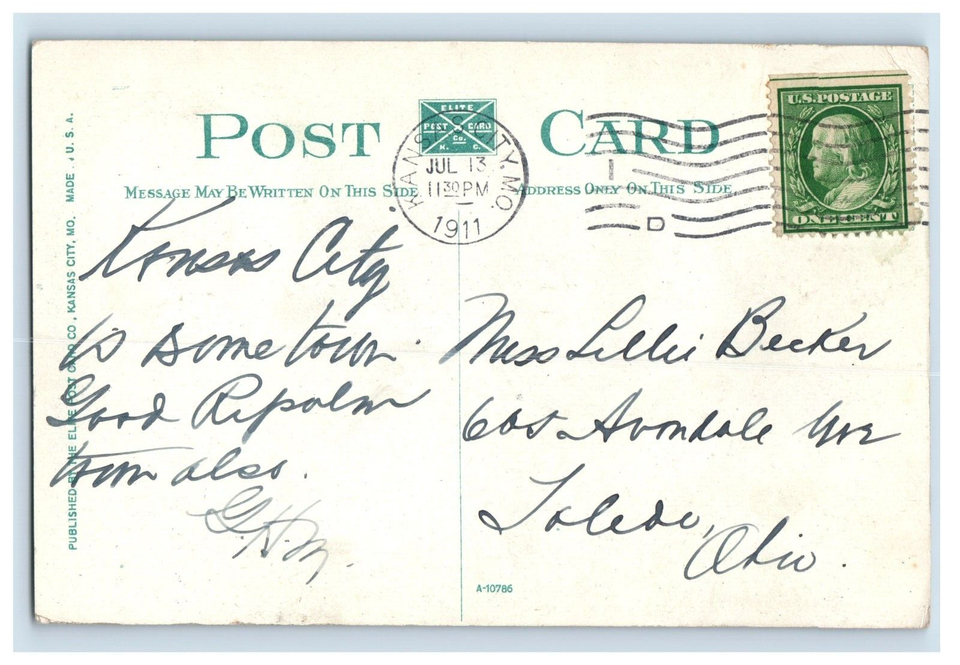 POST CARD
ELITE
POST CARD
Co.
K. C.
MESSAGE MAY BE WRITTEN ON THIS SIDE
ADDRESS ONLY ON THIS SIDE
KANSAS CITY, MO.
JUL 13
11 30 PM
1911
D
U.S. POSTAGE
ONE CENT
Kansas City
is some town
Good
town also.
G.H.M.
Miss Lillie Becker
605 Avondale Ave
Toledo,
Ohio.
A-10786
PUBLISHED BY THE ELITE POST CARD CO., KANSAS CITY, MO. MADE U.S.A.